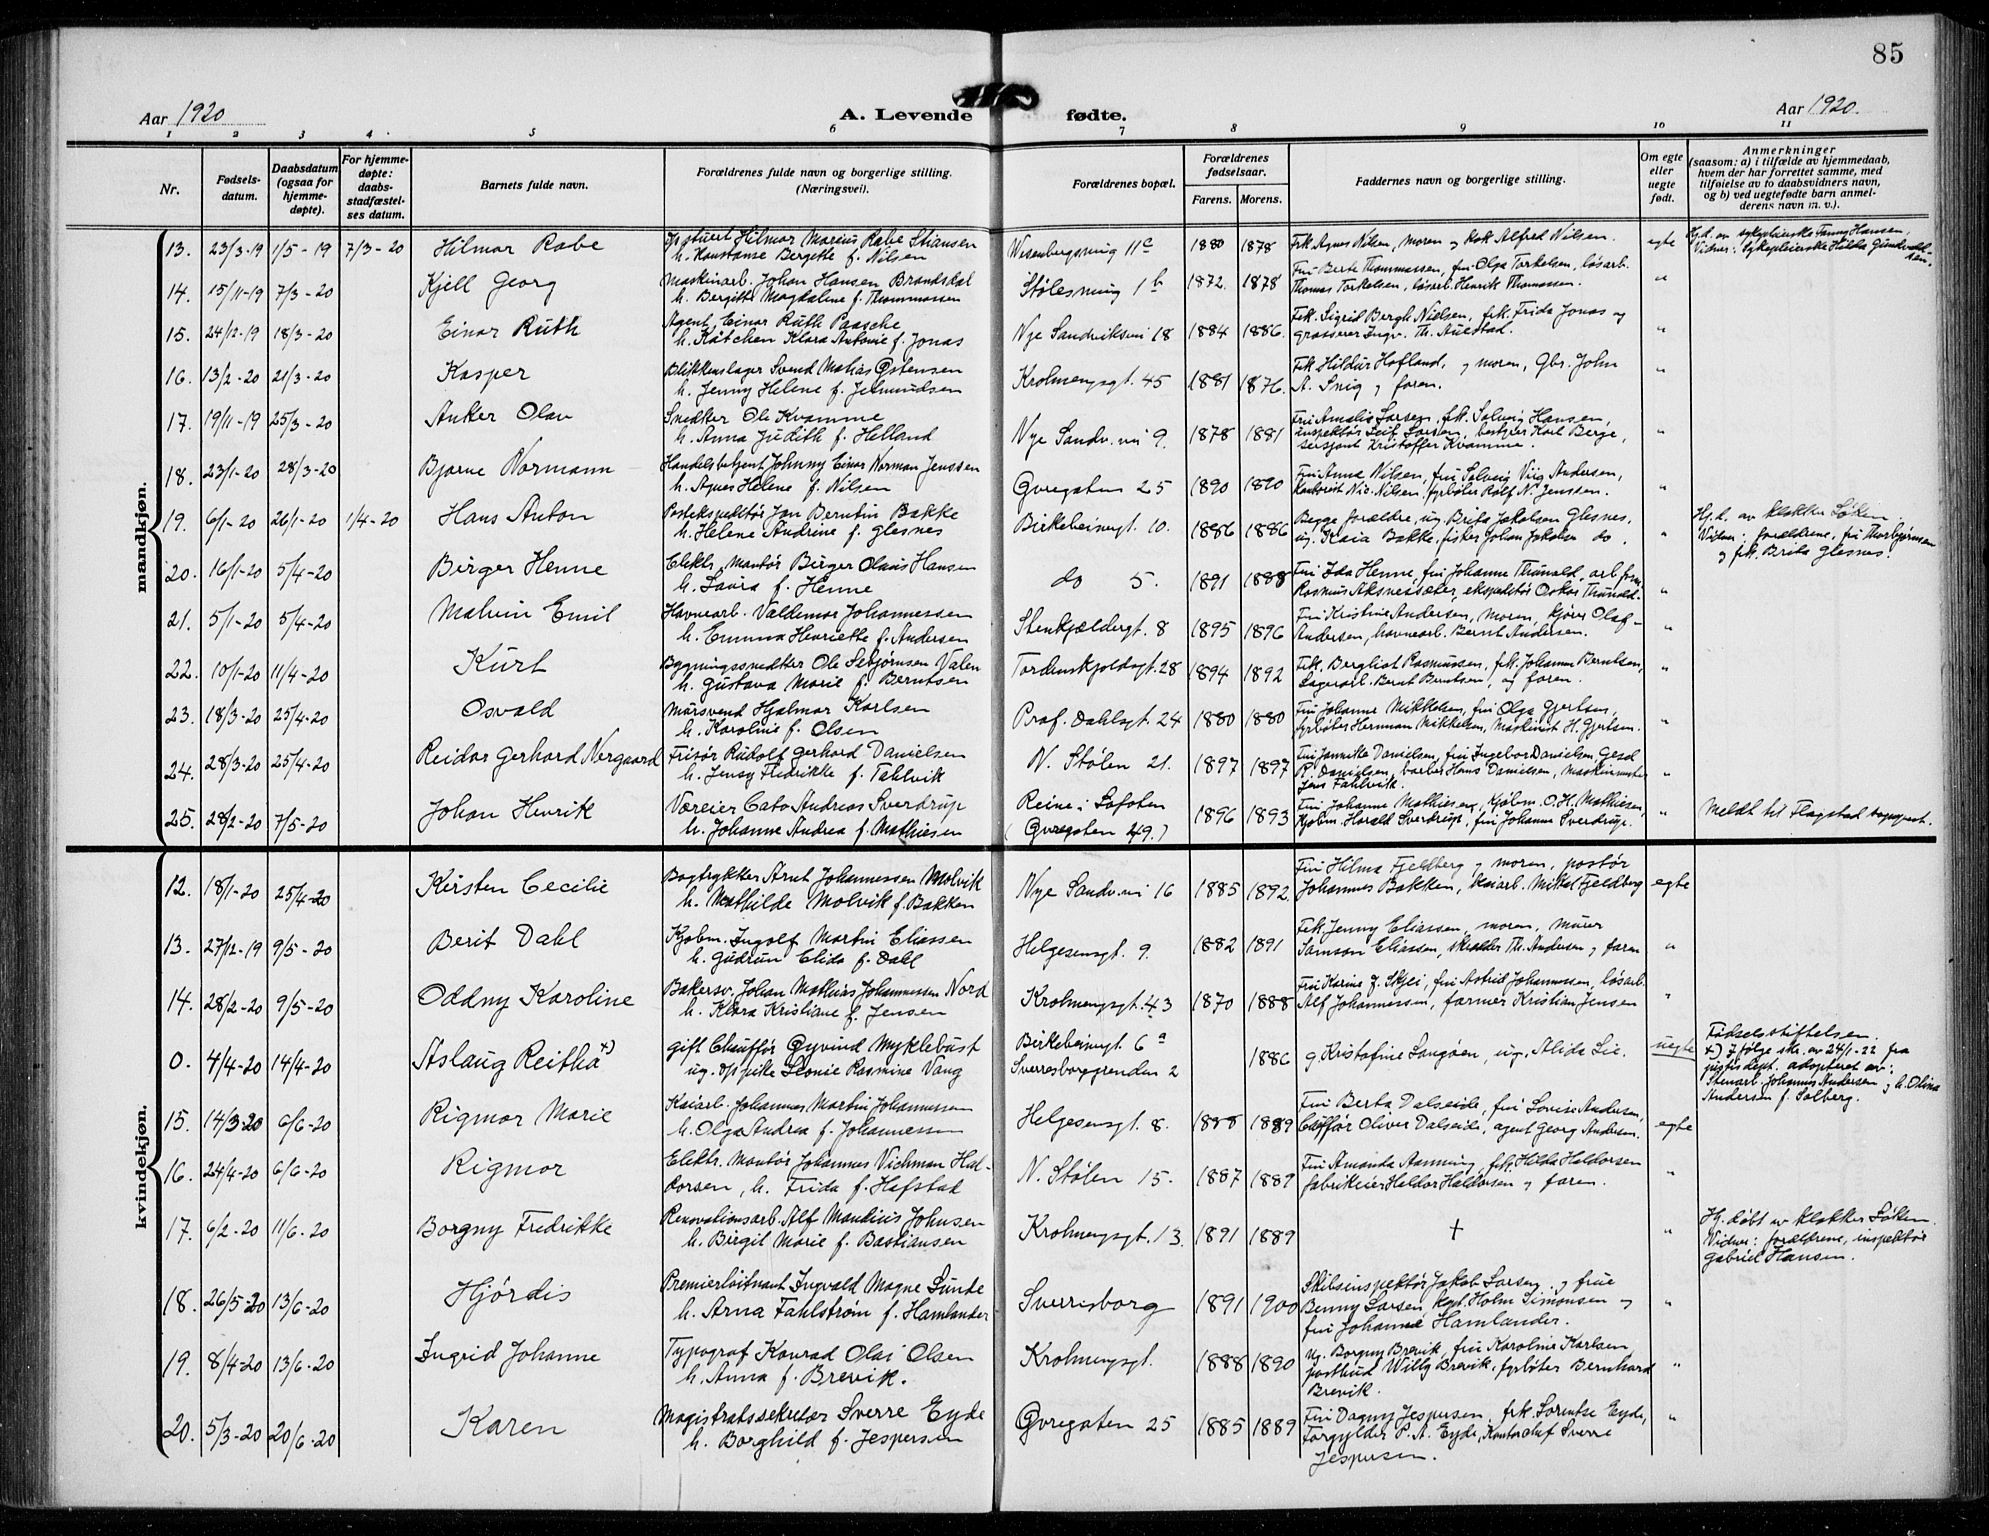 85
Aar 1920
A. Levende fødte.
Aar 1920.
1 2 3 4 5 6 7 8 9 10 11
Nr.
Fødselsdatum.
Daabsdatum (ogsaa for hjemmedøpte).
For hjemmedøpte: daabsstadfæstelses datum.
Barnets fulde navn.
Forældrenes fulde navn og borgerlige stilling. (Næringsvei).
Forældrenes bopæl.
Forældrenes fødselsaar.
Farens. Morens.
Faddernes navn og borgerlige stilling.
Om egte eller uegte født.
Anmerkninger (saasom: a) i tilfælde av hjemmedaab, hvem der har forrettet samme, med tilføielse av to daabsvidners navn, og b) ved uegtefødte barn anmelderens navn m. v.).
mandkjøn.
13. 23/3-19 1/5-19 7/3-20 Hilmar Rabe Hilmar Marius Rabe Stiansen Wesenbergsmug 11c 1880 1878 Frk. Agnes Nilsen, moren og kok Alfred Nilsen. egte Hj.d. av sykepleierske Fanny Hansen,
h. Konstanse Bergitte f. Nilsen Vidner: Sykepleierske Hilda Gundvaldsen.
14. 15/11-19 7/3-20 Kjell Georg Maskinarb. Johan Hansen Brandsdal Stølesmug 1b 1872. 1878 Fru Berte Thommassen, fru Olga Torkelsen, løsarb. "
h. Bergitte Magdalene f. Thommassen Thomas Torkelsen, løsarb. Henrik Thomassen.
15. 24/12-19 18/3-20 Einar Ruth Agent Einar Ruth Paasche Nye Sandviksvei 18 1884 1886. Frk. Sigrid Bergh Nielsen, frk. Frida Jonas og "
h. Kätchen Klara Antonie f. Jonas grosserer Ingv. Th. Auestad.
16. 13/2-20 21/3-20 Kasper Blikkenslager Svend Matias Østensen Krohnengsgt. 45 1881 1876. Frk. Hildur Hofland, og moren, Gbr. John "
h. Jenny Helene f. Jelmundsen A. Snig og faren.
17. 19/11-19 25/3-20 Anker Olav Snedker Ole Kvamme Nye Sandv.vei 9. 1878 1881 Fru Amalie Larsen, frk. Solveig Hansen, "
h. Anna Judith f. Helland inspektør Leif Larsen, bestyrer Karl Berge,
sersjant Kristoffer Kvamme.
18. 23/1-20 28/3-20 Bjarne Normann Handelsbetjent Johnny Einar Norman Jenssen Øvregaten 25 1890 1890 Fru Anna Nilsen, fru Solveig Viig Andersen, "
h. Agnes Helene f. Nilsen Kontorist Nic. Nilsen, fyrbøter Rolf N. Jenssen.
19. 6/1-20 26/1-20 1/4-20 Hans Anton Postekspeditør Jan Berntin Bakke Birkebeinergt. 10. 1886 1886 Begge forældre, ug. Brita Jakobsen Glesnes, " Hj.d. av klokker Løken.
h. Helene Andrine f. Glesnes ug. Kaia Bakke, fisker Johan Jakobsen do. Vidner: forældrene, fru Thorbjørnsen
og frk. Brita Glesnes.
20. 16/1-20 5/4-20 Birger Henne Elektr. Montør Birger Olaus Hansen do 5. 1891 1888 Fru Ida Henne, fru Johanne Thunold, arb.form. "
h. Laura f. Henne Rasmus Aksnessæter, ekspeditør Oskar Thunold.
21. 5/1-20 5/4-20 Malvin Emil Havnearb. Valdemar Johannessen Stenkjældergt. 8 1895 1896 Fru Kristine Andersen, moren, kjører Olaf "
h. Emma Henriette f. Andersen Andersen, havnearb. Bernt Andersen.
22. 10/1-20 11/4-20 Kurt Bygningssnedker Ole Sebjørnsen Valen Tordenskjoldsgt. 28 1894 1892 Frk. Bergliot Rasmussen, frk. Johanne Berntsen, "
h. Gustava Marie f. Berntsen Lagerarb. Bernt Berntsen, og faren.
23. 18/3-20 25/4-20 Osvald Mursvend Hjalmar Karlsen Prof. Dahlsgt. 24 1880 1880 Fru Johanne Mikkelsen, fru Olga Gjertsen, "
h. Karoline f. Olsen fyrbøter Herman Mikkelsen, Maskinist H. Gjertsen.
24. 28/3-20 25/4-20 Reidar Gerhard Norgaard Frisør Rudolf Gerhard Danielsen N. Stølen 21. 1897 1897 Fru Jannikke Danielsen, fru Ingebor Danielsen Gerd "
h. Jensy Fredrikke f. Fahlvik R. Danielsen, barber Hans Danielsen, Maskinmester
Jens Fahlvik.
25. 28/2-20 7/5-20 Johan Henrik Væreier Cato Andreas Sverdrup Reine i Lofoten 1896 1893 Fru Johanne Mathiesen, Kjøbm. O. H. Mathiesen, " Meldt til Flagstad sogneprest.
h. Johanne Andrea f. Mathiesen (Øvregaten 49.) Kjøbm. Harald Sverdrup, fru Johanne Sverdrup.
kvindekjøn.
12. 18/1-20 25/4-20 Kirsten Cecilie Bogtrykker Arnt Johannessen Molvik Nye Sandv.vei 16 1885 1892. Fru Hilma Fjeldberg og moren, postør egte
h. Mathilde Molvik f. Bakken Johannes Bakken, Kaiarb. Mikal Fjeldberg
13. 27/12-19 9/5-20 Berit Dahl Kjøbm. Ingolf Martin Eliassen Helgesensgt. 9. 1882 1891 Frk. Jenny Eliassen, moren, murer "
h. Gudrun Elida f. Dahl Samson Eliassen, skrædder Th. Andersen og faren
14. 28/2-20 9/5-20 Oddny Karoline Bakersv. Johan Mathias Johannessen Nord Krohnengsgt. 43 1870 1888 Fru Karine J. Skjei, fru Astrid Johannessen, løsarb. "
h. Klara Kristiane f. Jensen Alf Johannessen, farmer Kristian Jensen
0. 4/4-20 14/4-20 Aslaug Reitha +) gift Chauffør Øyvind Myklebust Birkebeinergt 6a 1886 g. Kristofine Langøen, ug. Alida Lie. uegte Fødselsstiftelsen.
ug. oppike Leonie Rasmine Vang Sverresborggrenden 2 +) Ifølge skr. av 24/1-22 fra
justisdept. adopteret av:
Stenarb. Johannes Andersen og h. Olina
Andersen f. Solberg.
15. 14/3-20 6/6-20 Rigmor Marie Kaiarb. Johannes Martin Johannessen Helgesensgt. 8. 1888 1889 Fru Berta Dalseide, fru Louise Andersen, egte
h. Olga Andrea f. Johannessen Chaffør Oliver Dalseide, agent Georg Andersen.
16. 24/4-20 6/6-20 Rigmor Elektr. Montør Johannes Vichman Hal- N. Stølen 15. 1887 1889 Fru Amanda Aanning, frk. Hilda Haldorsen "
dorsen, h. Frida f. Hafstad fabrikeier Haldor Haldorsen og faren.
17. 6/2-20 11/6-20 Borgny Fredrikke Renovationsarb. Alf Mandius Johnsen Krohnengsgt. 13. 1891 1889 + " Hj. døbt av klokker Løken.
h. Birgit Marie f. Bastiansen Vidner: forældrene, inspektør
Gabriel Hansen.
18. 26/5-20 13/6-20 Hjørdis Premierløitnant Ingvald Magne Lunde Sverresborg 1891 1900 Skibsinspektør Jakob Larsen og frue "
h. Arna Fahlstrøm f. Hamlander Benny Larsen, kapt. Holm Simonsen og
fru Johanne Hamlander.
19. 8/4-20 13/6-20 Ingrid Johanne Typograf Konrad Olai Olsen Krohnengsgt. 1888 1890 Ug. Borgny Brevik, fru Karoline Karlsen, "
h. Anna f. Brevik. postbud Willy Brevik, fyrbøter Bernhard
Brevik.
20. 5/3-20 20/6-20 Karen Magistratssekretær Sverre Eyde Øvregaten 25 1885 1889 Fru Dagny Jespersen, frk. Lorentse Eyde, "
h. Borghild f. Jespersen Forgylder P. A. Eyde, Kontorchef Sverre
Jespersen.